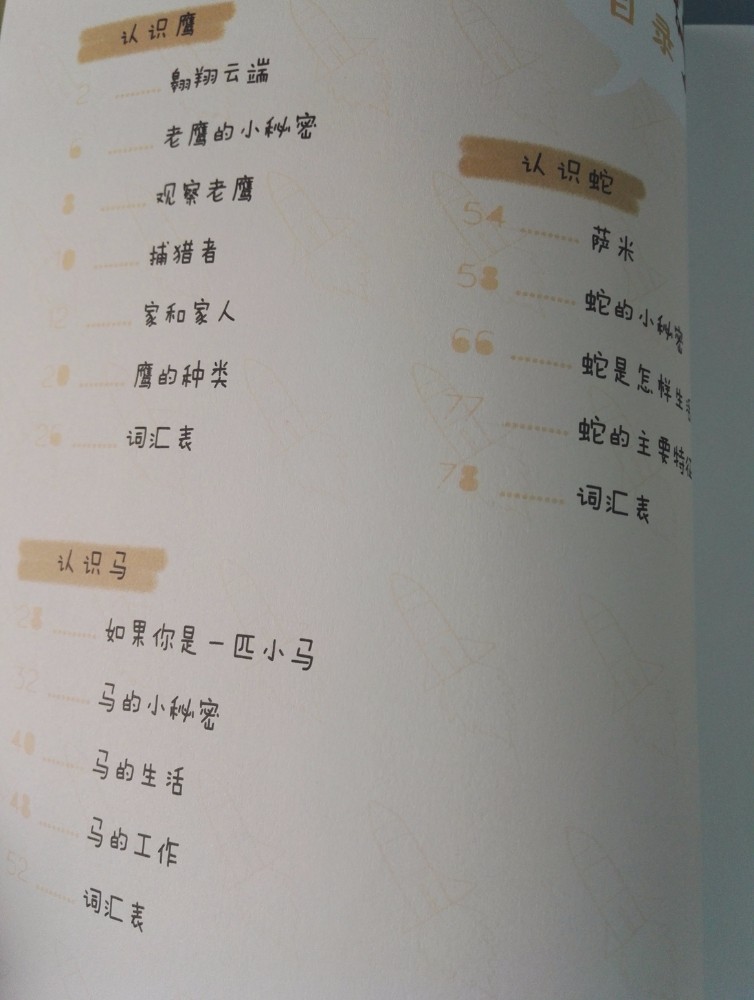 目录
认识鹰
2 ........ 翱翔云端
6 ........ 老鹰的小秘密
8 ........ 观察老鹰
10 ........ 捕猎者
12 ........ 家和家人
20 ........ 鹰的种类
26 ........ 词汇表
认识马
28 ........ 如果你是一匹小马
32 ........ 马的小秘密
40 ........ 马的生活
48 ........ 马的工作
52 ........ 词汇表
认识蛇
54 ........ 萨米
58 ........ 蛇的小秘密
66 ........ 蛇是怎样生
77 ........ 蛇的主要特征
78 ........ 词汇表